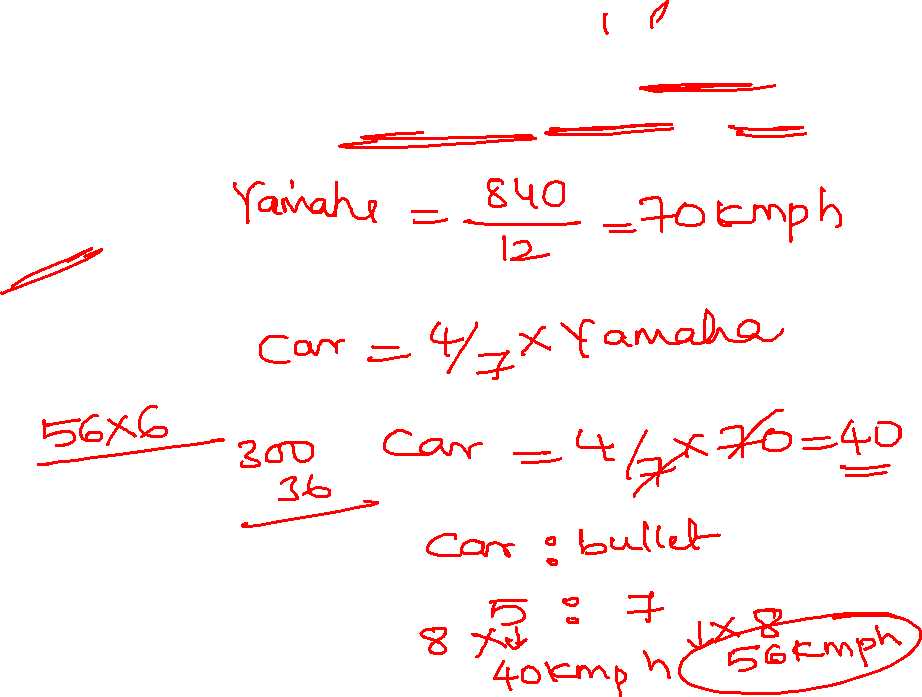 Yamaha = 840/12 = 70kmph
Car = 4/7 × Yamaha
56×6
300
36
Car = 4/7 × 70 = 40
Car : bullet
5 : 7
8 × ↓ ↓ × 8
40kmph 56kmph